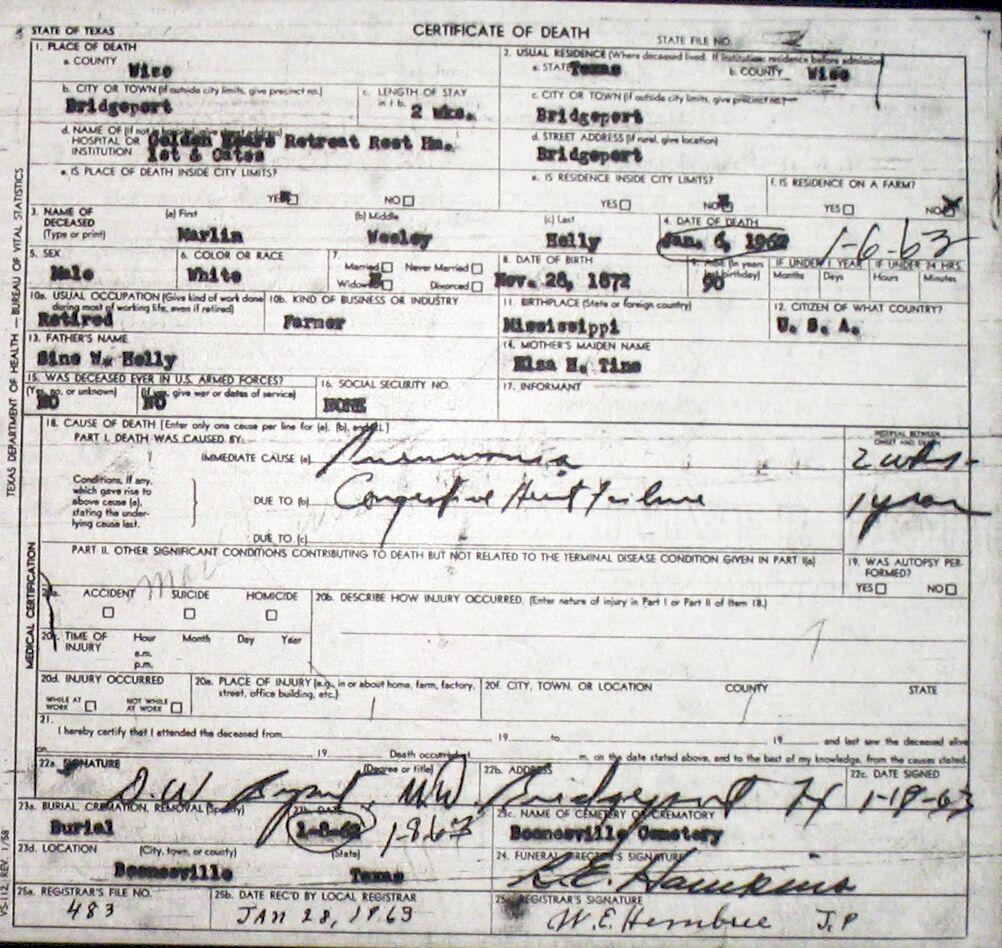 STATE OF TEXAS
CERTIFICATE OF DEATH
STATE FILE NO.
1. PLACE OF DEATH
a. COUNTY
Wise
2. USUAL RESIDENCE (Where deceased lived. If institution: residence before admission)
a. STATE Texas
b. COUNTY Wise
b. CITY OR TOWN (If outside city limits, give precinct no.)
Bridgeport
c. LENGTH OF STAY in 1 b.
2 wks.
c. CITY OR TOWN (If outside city limits, give precinct no.)
Bridgeport
d. NAME OF (If not in hospital, give street address)
HOSPITAL OR INSTITUTION
Golden Years Retreat Rest Hm.
1st & Cates
d. STREET ADDRESS (If rural, give location)
Bridgeport
e. IS PLACE OF DEATH INSIDE CITY LIMITS?
YES NO
e. IS RESIDENCE INSIDE CITY LIMITS?
YES NO
f. IS RESIDENCE ON A FARM?
YES NO
3. NAME OF DECEASED (Type or print)
(a) First
Marlin
(b) Middle
Wesley
(c) Last
Holly
4. DATE OF DEATH
Jan. 6, 1962 1-6-63
5. SEX
Male
6. COLOR OR RACE
White
7.
Married Never Married
Widowed Divorced
8. DATE OF BIRTH
Nov. 28, 1872
9. AGE (In years last birthday)
90
IF UNDER 1 YEAR
Months Days
IF UNDER 24 HRS.
Hours Minutes
10a. USUAL OCCUPATION (Give kind of work done during most of working life, even if retired)
Retired
10b. KIND OF BUSINESS OR INDUSTRY
Farmer
11. BIRTHPLACE (State or foreign country)
Mississippi
12. CITIZEN OF WHAT COUNTRY?
U. S. A.
13. FATHER'S NAME
Sine W. Holly
14. MOTHER'S MAIDEN NAME
Elza H. Tine
15. WAS DECEASED EVER IN U.S. ARMED FORCES?
(Yes, no, or unknown)
NO
(If yes, give war or dates of service)
NO
16. SOCIAL SECURITY NO.
NONE
17. INFORMANT
18. CAUSE OF DEATH [Enter only one cause per line for (a), (b), and (c).]
PART I. DEATH WAS CAUSED BY:
IMMEDIATE CAUSE (a) Pneumonia
INTERVAL BETWEEN ONSET AND DEATH
2 wks-
Conditions, if any, which gave rise to above cause (a), stating the underlying cause last.
DUE TO (b) Congestive Heart Failure
1 year
DUE TO (c)
PART II. OTHER SIGNIFICANT CONDITIONS CONTRIBUTING TO DEATH BUT NOT RELATED TO THE TERMINAL DISEASE CONDITION GIVEN IN PART I(a)
19. WAS AUTOPSY PERFORMED?
YES NO
20a. ACCIDENT SUICIDE HOMICIDE
20b. DESCRIBE HOW INJURY OCCURRED. (Enter nature of injury in Part I or Part II of Item 18.)
20c. TIME OF INJURY
Hour Month Day Year
a.m.
p.m.
20d. INJURY OCCURRED
WHILE AT WORK NOT WHILE AT WORK
20e. PLACE OF INJURY (e.g., in or about home, farm, factory, street, office building, etc.)
20f. CITY, TOWN, OR LOCATION COUNTY STATE
21.
I hereby certify that I attended the deceased from 19 to 19 and last saw the deceased alive
on 19 Death occurred m. on the date stated above, and to the best of my knowledge, from the causes stated.
22a. SIGNATURE (Degree or title)
22b. ADDRESS
22c. DATE SIGNED
Bridgeport Tx 1-18-63
23a. BURIAL, CREMATION, REMOVAL (Specify)
Burial
23b. DATE
1-8-62 1-8-63
23c. NAME OF CEMETERY OR CREMATORY
Boonesville Cemetery
23d. LOCATION (City, town, or county) (State)
Boonesville Texas
24. FUNERAL DIRECTOR'S SIGNATURE
R.E. Hawkins
25a. REGISTRAR'S FILE NO.
483
25b. DATE REC'D BY LOCAL REGISTRAR
JAN 28, 1963
25c. REGISTRAR'S SIGNATURE
W.E. Hembree J.P
TEXAS DEPARTMENT OF HEALTH — BUREAU OF VITAL STATISTICS
MEDICAL CERTIFICATION
VS-112, REV. 1/58